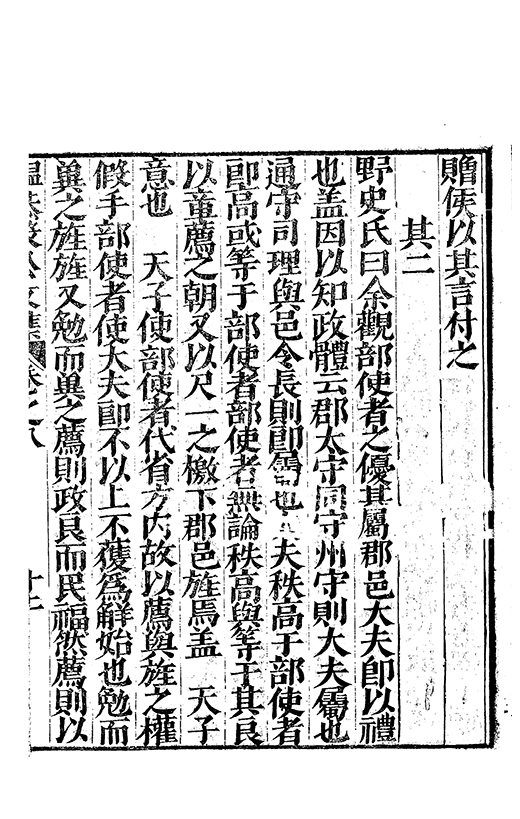 贈侯以其言付之
其二
野史氏曰余觀部使者之優其屬郡邑大夫卽以禮
也盖因以知政體云郡太守同守州守則大夫屬也
通守司理與邑令長則卽屬也大夫秩高于部使者
卽高或等于部使者部使者無論秩高與等于其良
以章薦之朝又以尺一之檄下郡邑旌焉盖　天子
意也　天子使部使者代省方内故以薦與旌之權
假手部使者使大夫卽不以上不獲爲觧始也勉而
兾之旌旌又勉而兾之薦則政良而民福然薦則以
公文集　卷之八　十二